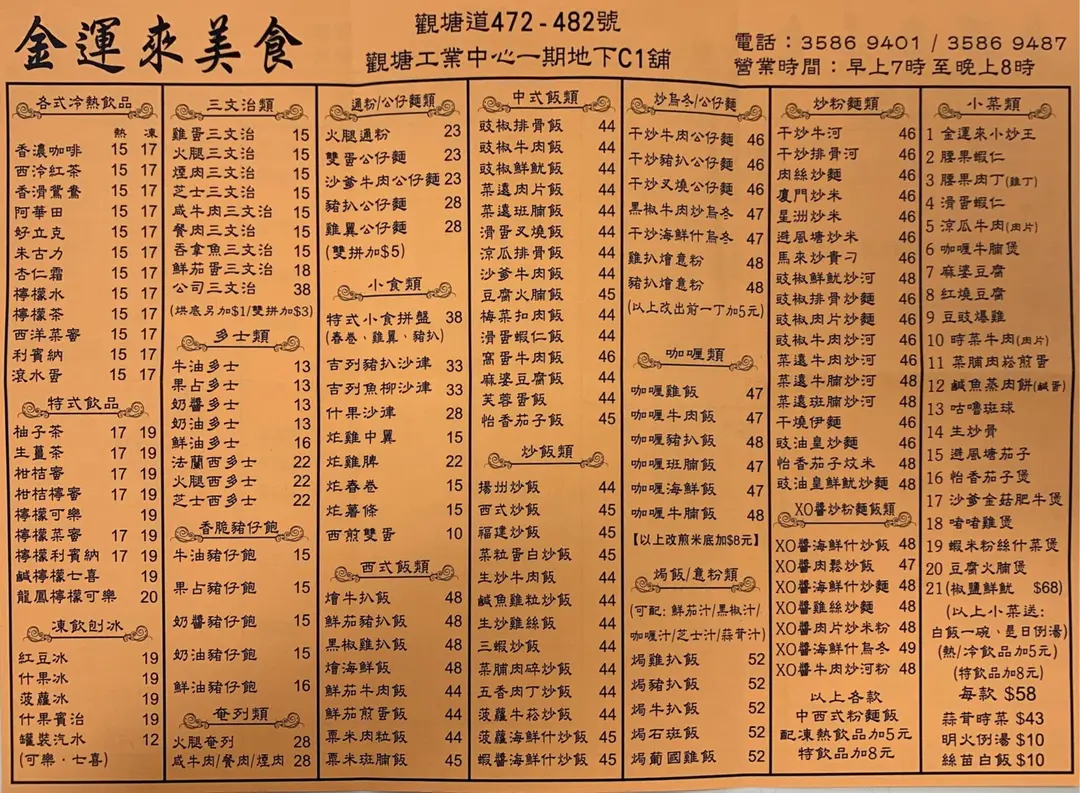 金運來美食
觀塘道472-482號
觀塘工業中心一期地下C1舖
電話：3586 9401 / 3586 9487
營業時間：早上7時至晚上8時
各式冷熱飲品
熱 凍
香濃咖啡 15 17
西泠紅茶 15 17
香滑鴛鴦 15 17
阿華田 15 17
好立克 15 17
朱古力 15 17
杏仁霜 15 17
檸檬水 15 17
檸檬茶 15 17
西洋菜審 15 17
利賓納 15 17
滾水蛋 15 17
特式飲品
柚子茶 17 19
生薑茶 17 19
柑桔審 17 19
柑桔檸審 17 19
檸檬可樂 19
檸檬菜審 17 19
檸檬利賓納 17 19
鹹檸檬七喜 19
龍鳳檸檬可樂 20
凍飲刨冰
紅豆冰 19
什果冰 19
菠蘿冰 19
什果賓治 19
罐裝汽水 12
(可樂·七喜)
三文治類
雞蛋三文治 15
火腿三文治 15
煙肉三文治 15
芝士三文治 15
咸牛肉三文治 15
餐肉三文治 15
吞拿魚三文治 15
鮮茄蛋三文治 18
公司三文治 38
(烘底另加$1/雙拼加$3)
多士類
牛油多士 13
果占多士 13
奶醬多士 13
奶油多士 13
鮮油多士 16
法蘭西多士 22
火腿西多士 22
芝士西多士 22
香脆豬仔飽
牛油豬仔飽 15
果占豬仔飽 15
奶醬豬仔飽 15
奶油豬仔飽 15
鮮油豬仔飽 16
奄列類
火腿奄列 28
咸牛肉/餐肉/煙肉 28
通粉/公仔麵類
火腿通粉 23
雙蛋公仔麵 23
沙爹牛肉公仔麵 23
豬扒公仔麵 28
雞翼公仔麵 28
(雙拼加$5)
小食類
特式小食拼盤 38
(春卷、雞翼、豬扒)
吉列豬扒沙律 33
吉列魚柳沙律 33
什果沙律 28
炸雞中翼 15
炸雞脾 22
炸春卷 15
炸薯條 15
西煎雙蛋 10
西式飯類
燴牛扒飯 48
鮮茄豬扒飯 48
黑椒雞扒飯 48
燴海鮮飯 48
鮮茄牛肉飯 44
鮮茄煎蛋飯 44
粟米肉粒飯 44
粟米班腩飯 45
中式飯類
豉椒排骨飯 44
豉椒牛肉飯 44
豉椒鮮魷飯 44
菜遠肉片飯 44
菜遠班腩飯 44
滑蛋叉燒飯 44
涼瓜排骨飯 44
沙爹牛肉飯 44
豆腐火腩飯 45
梅菜扣肉飯 44
滑蛋蝦仁飯 44
窩蛋牛肉飯 46
麻婆豆腐飯 44
芙蓉蛋飯 44
怡香茄子飯 45
炒飯類
揚州炒飯 44
西式炒飯 44
福建炒飯 44
菜粒蛋白炒飯 44
生炒牛肉飯 44
鹹魚雞粒炒飯 44
生炒雞絲飯 44
三蝦炒飯 44
菜脯肉碎炒飯 44
五香肉丁炒飯 44
菠蘿牛崧炒飯 44
菠蘿海鮮什炒飯 45
蝦醬海鮮什炒飯 45
炒烏冬/公仔麵
干炒牛肉公仔麵 46
干炒豬扒公仔麵 46
干炒叉燒公仔麵 46
黑椒牛肉炒烏冬 47
干炒海鮮什烏冬 47
雞扒燴意粉 48
豬扒燴意粉 48
(以上改出前一丁加5元)
咖喱類
咖喱雞飯 47
咖喱牛肉飯 47
咖喱豬扒飯 48
咖喱班腩飯 47
咖喱海鮮飯 47
咖喱牛腩飯 48
【以上改煎米底加$8元】
焗飯/意粉類
(可配：鮮茄汁/黑椒汁/
咖喱汁/芝士汁/蒜茸汁)
焗雞扒飯 52
焗豬扒飯 52
焗牛扒飯 52
焗石斑飯 52
焗葡國雞飯 52
炒粉麵類
干炒牛河 46
干炒排骨河 46
肉絲炒麵 46
廈門炒米 46
星洲炒米 46
避風塘炒米 46
馬來炒貴刁 46
豉椒鮮魷炒河 48
豉椒排骨炒麵 46
豉椒肉片炒麵 46
豉椒牛肉炒河 46
菜遠牛肉炒河 46
菜遠牛腩炒河 48
菜遠班腩炒河 48
干燒伊麵 46
豉油皇炒麵 46
怡香茄子炆米 48
豉油皇鮮魷炒麵 48
XO醬炒粉麵飯類
XO醬海鮮什炒飯 48
XO醬肉鬆炒飯 47
XO醬海鮮什炒麵 48
XO醬雞絲炒麵 48
XO醬肉片炒米粉 48
XO醬海鮮什烏冬 49
XO醬牛肉炒河粉 48
以上各款
中西式粉麵飯
配凍熱飲品加5元
特飲品加8元
小菜類
1 金運來小炒王
2 腰果蝦仁
3 腰果肉丁(雞丁)
4 滑蛋蝦仁
5 涼瓜牛肉(肉片)
6 咖喱牛腩煲
7 麻婆豆腐
8 紅燒豆腐
9 豆豉爆雞
10 時菜牛肉(肉片)
11 菜脯肉崧煎蛋
12 鹹魚蒸肉餅(鹹蛋)
13 咕嚕斑球
14 生炒骨
15 避風塘茄子
16 怡香茄子煲
17 沙爹金菇肥牛煲
18 啫啫雞煲
19 蝦米粉絲什菜煲
20 豆腐火腩煲
21 (椒鹽鮮魷 $68)
(以上小菜送：
白飯一碗、是日例湯)
(熱/冷飲品加5元)
(特飲品加8元)
每款 $58
蒜茸時菜 $43
明火例湯 $10
絲苗白飯 $10